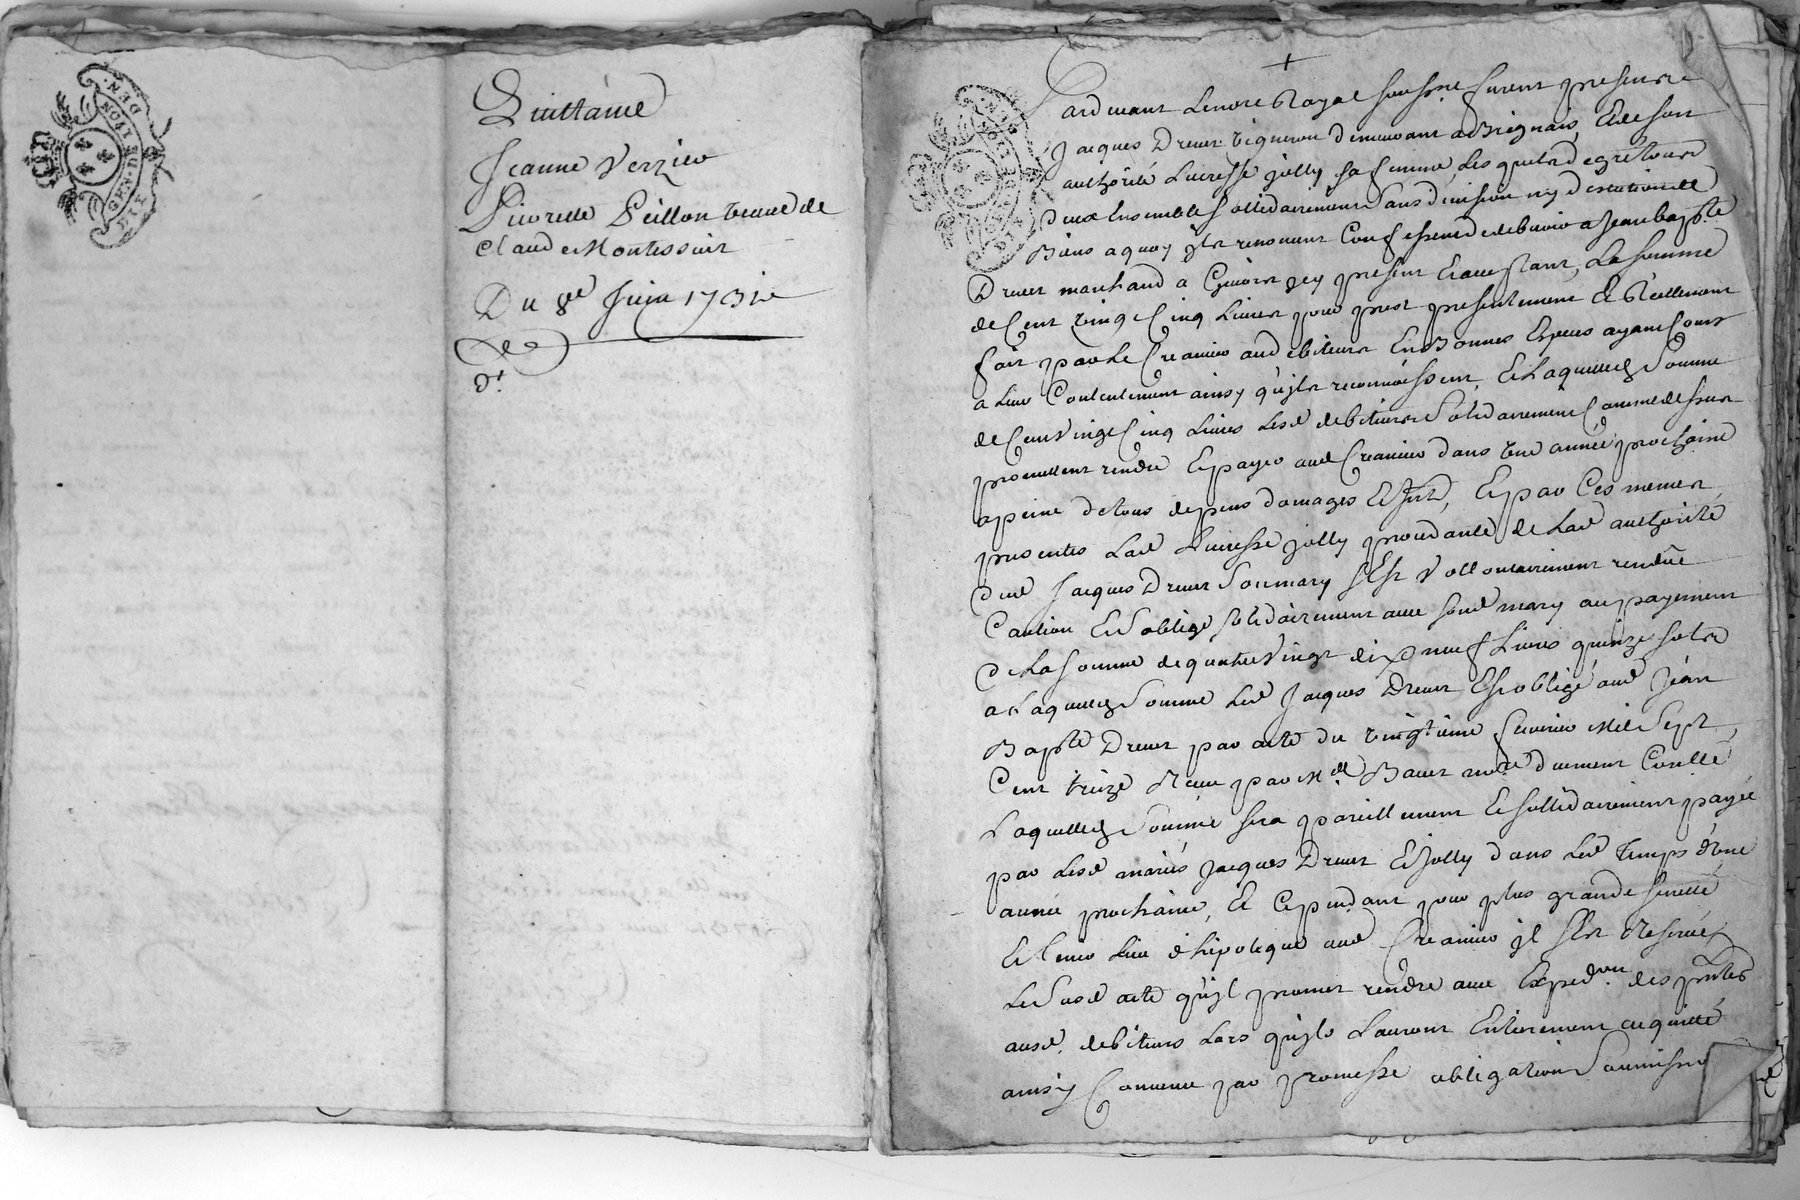 GEN. DE LYON
Quittance
Jeanne Verzieu
Pierrette Peillon veuve de
Claude Montessuit
Du 8e Juin
dt
Pardevant Lenore Royal soussne furent presents
Jacques Drevet vigneron demeurant a Brignais, Et de son
authorité Lucresse Jolly sa femme, Les quels de gré tous
deux Ensemble sollidairement sans division ny de
Biens a quoy jls renonent Confessent debvoir a Jean bapte
Drevet marchand a Givors jcy present Et aceptant, La somme
de Cent vingt Cinq Livres pour prest presentement Et Réellement
fait par Le Creancier aud debiteurs En Bonnes Especes ayant Cours
a Leur Contentement ainsy qu'jls reconnoissent, Et Laquelle Somme
de Cent Vingt Cinq Livres Lesd debiteurs Solidairement Comme dessus
promettent rendre Et payer aud Creancier dans une année prochaine
apeine de tous depens domages Et jnts, Et par Ces memes
presentes Lad Lucresse jolly procedante de Lad authorité
dud Jacques Drevet Son mary s'Est Vollontairement rendüe
Caution Et S'oblige solidairement avec sond mary au payement
de La somme de quatre Vingt dix neuf Livres quinze sols
a Laquelle Somme Led Jacques Drevet Est obligé aud Jean
Bapte Drevet par acte du vingtieme fevrier Mil Sept
Cent treize Receu par Me Bavet nore duement Conllé
Laquelle Somme sera pareillement Et sollidairement payée
par Lesd mariés Jacques Drevet Et Jolly dans Led temps d'une
année prochaine, Et Cependant pour plus grande seureté
Et tenir Lieu d'hipoteque aud Creancier jl s'Est Reservé
Le Susd acte qu'jl promet rendre avec Expedon des pntes
ausd. debiteurs Lors qu'jls Lauront Entierement acquitté
ainsy Convenu par promesse obligation Soumission